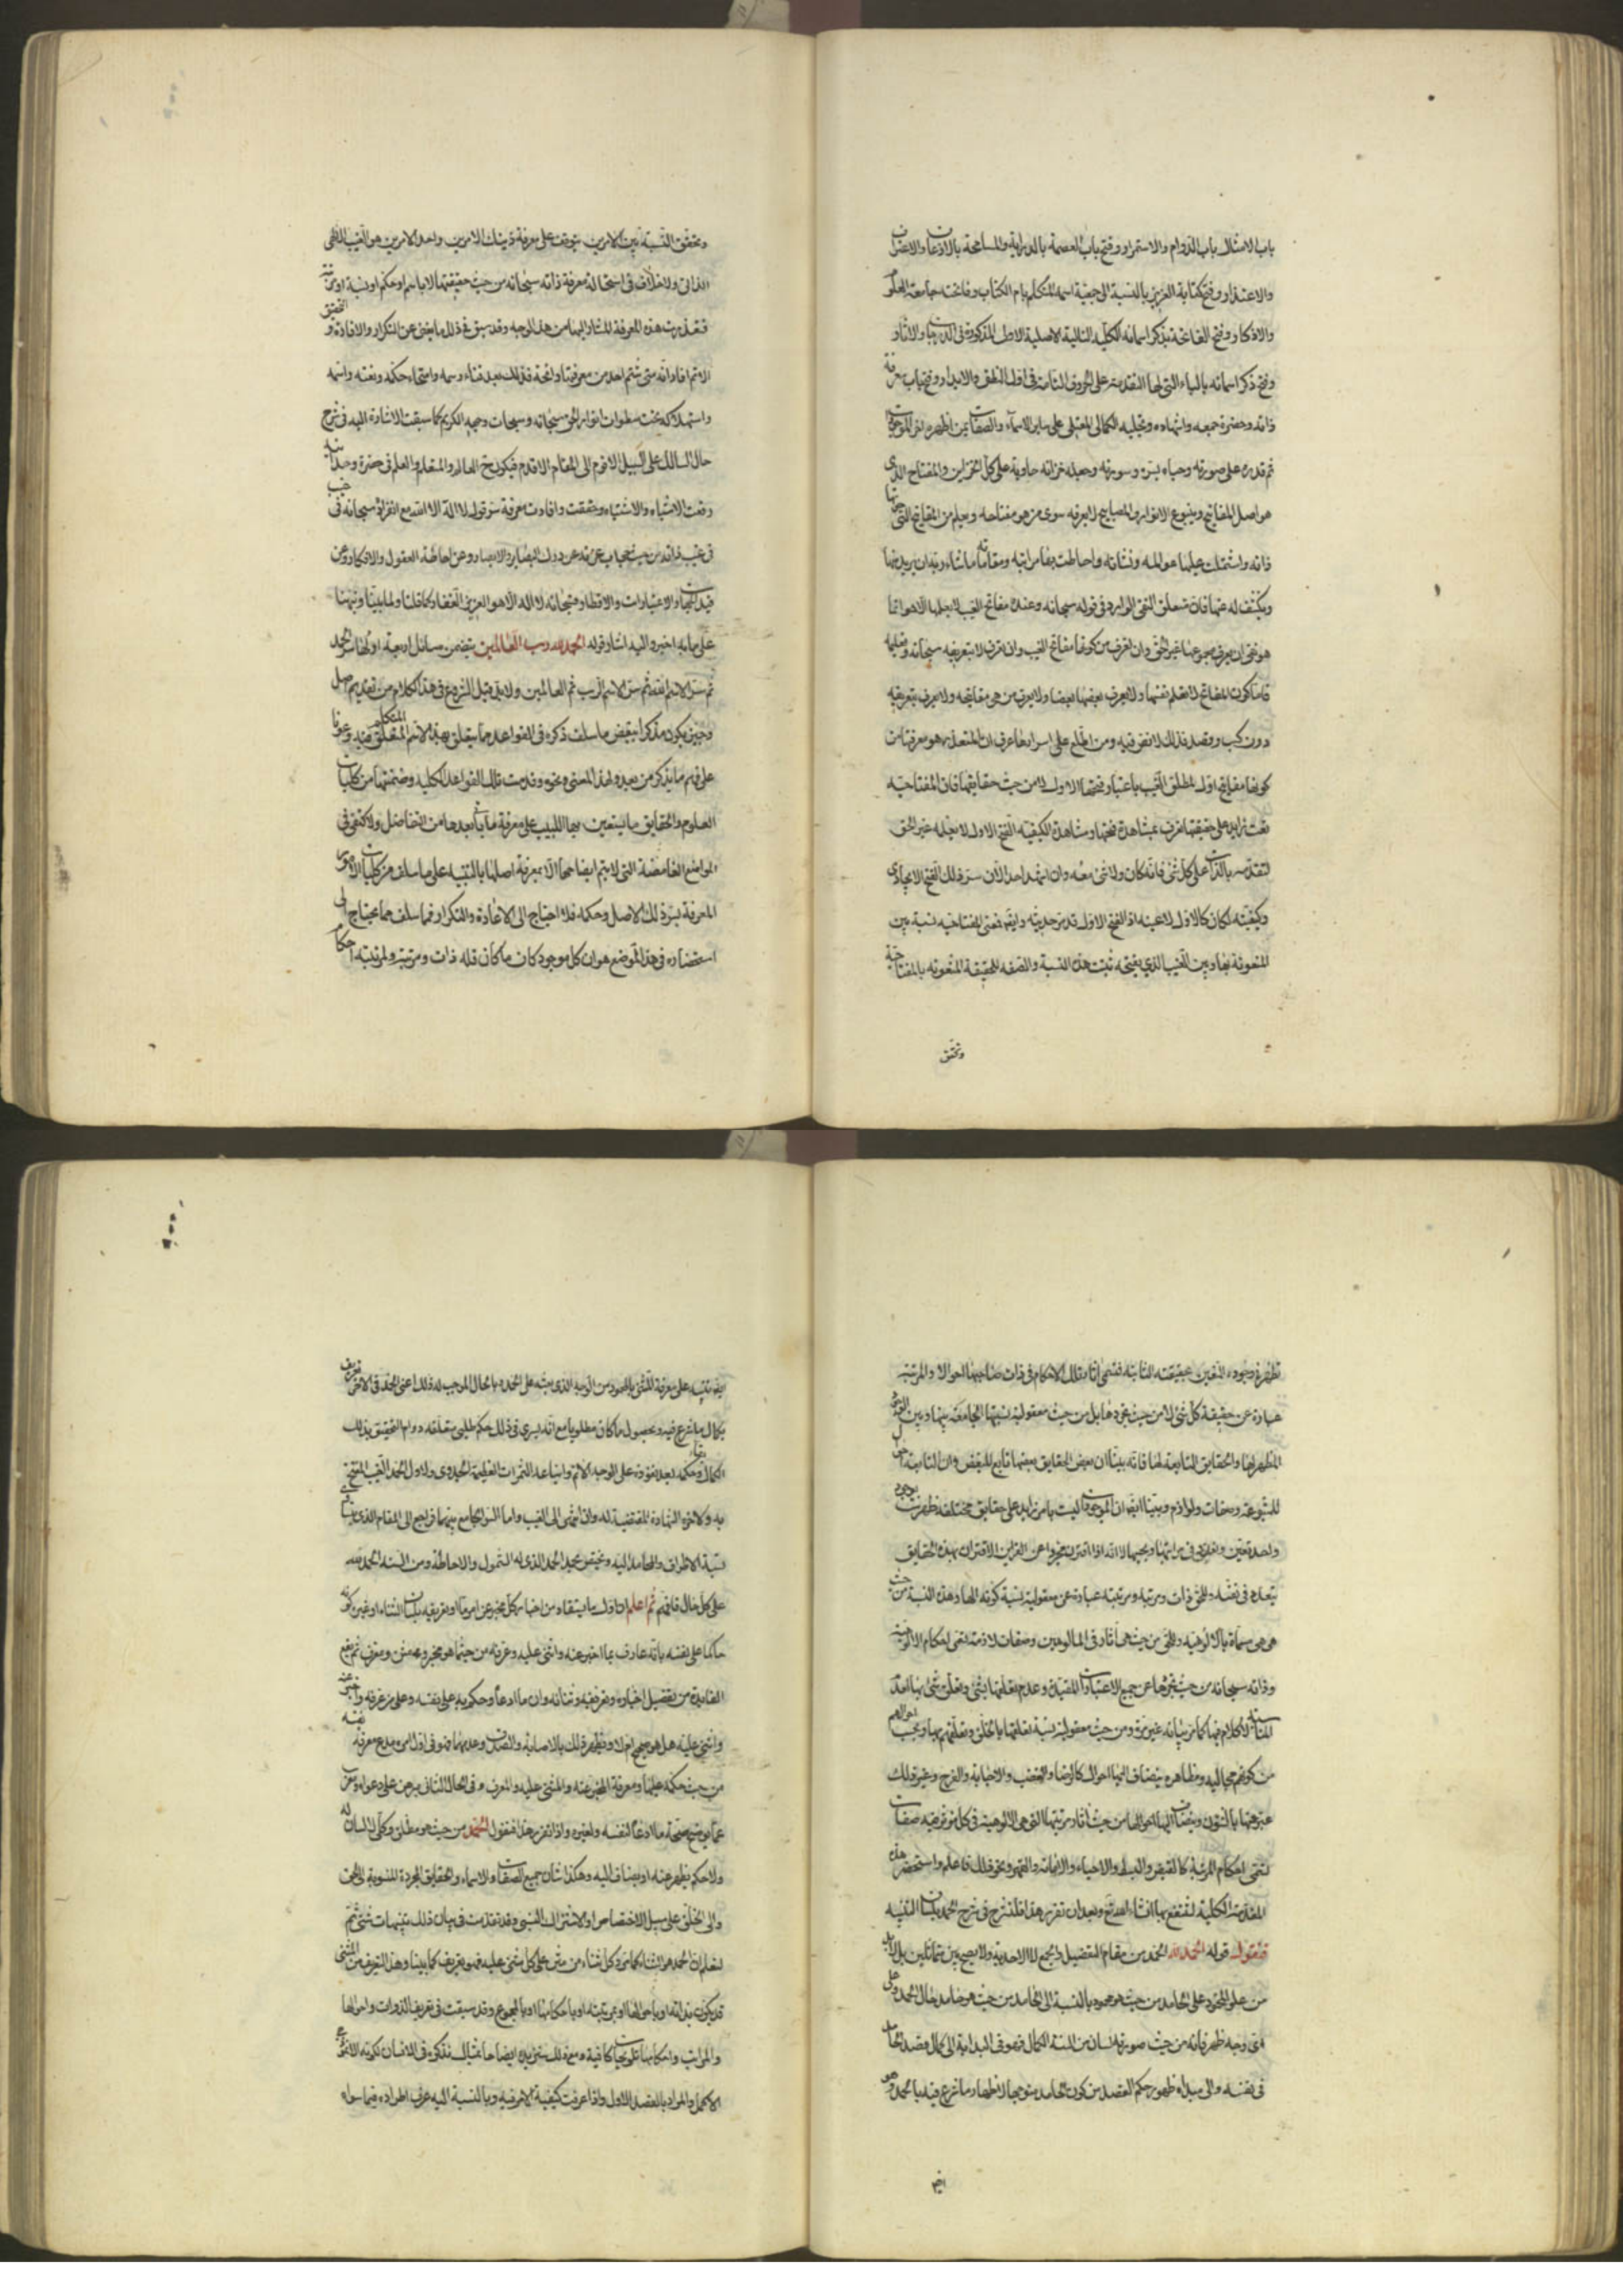 باب الامثال باب الدوام والاستمرار وفتح باب العصمة بالدراية والمسامحة بالاذعان والاعتراف
والاعتذار وفتح كتابة العزيز بالنسبة الى جمعية اسمه المتكلم بام الكتاب وفاتحته جامعة العلوم
والاذكار وفتح الفاتحة بذكر اسمائه الكلية التالية الاصلية الاول المذكورة فى
وفتح ذكر اسمائه بالباء التى لها التقدمة على الحروف التامة فى اول النطق والابدار وفتح باب معرفة
ذاته وحضرة جمعه واشهاده وتجليه الكمالى المعتلى على ساير الاسماء والصفات بمن اظهره اخر الموجودات
ثم قدره على صورته وحباه بسره وسورته وجعله خزانة حاوية على كل الخزاين والمفتاح الذى
هو اصل المفاتيح وينبوع الانوار والمصابيح لا يعرفه سوى من هو مفتاحه ويعلم من المفاتيح التى حوتها
ذاته واشتملت عليها عوالمه ونشاته واحاطت بها مراتبه ومقاماته ما شاء ربه ان يريه منها
ويكشف له عنها فان متعلق النفى الوارد فى قوله سبحانه وعنده مفاتح الغيب لا يعلمها الا هو انما
هو نفى ان يعرف مجموعها غير الحق وان تعرف من كونها مفاتح الغيب وان تعرف لا بتعريفه سبحانه وتعليمه
فاما كون المفاتح لا تعلم نفسها ولا يعرف بعضها بعضا ولا يعرف من هى مفاتيحه ولا يعرف بتعريفه
دون كسب وقصد فذلك لا نفى فيه ومن اطلع على اسرارها عرف ان المتعذر هو معرفتها من
كونها مفاتيح اول لمطلق الغيب باعتبار فتحها الاول لا من حيث حقايقها فان المفتاحية
نعت زايد على حقيقتها تعرف بمشاهدة فتحها ومشاهدة الكيفية الفتح الاول لا يعلمه غير الحق
لتقدمه بالذات على كل شئ فانه كان ولا شئ معه وان اشهد احد الآن سر ذلك الفتح الايجادى
وكيفيته لكان كالاول لا عينه اذ الفتح الاول قد مر حديثه وايضا فمعنى المفتاحيه نسبة بين
المنعوتة بها وبين الغيب الذي يفتحه ثبتت هذه النسبة والصفه للحقيقة المنعوته بالمفتاحية
وتحقق
وتحقق النسبة بين الامرين يتوقف على معرفة ذينك الامرين واحد الامرين هو الغيب الالهى
الذاتى ولا خلاف فى استحالة معرفة ذاته سبحانه من حيث حقيقتها لا باسم او حكم او نسبة او مرتبة
فتعذرت هذه المعرفة المشار اليها من هذا الوجه وقد سبق فى ذلك ما يغنى عن التكرار والافادة والتحقيق
الاتم افاد انه متى شم احد من معرفتها رائحة فذلك بعد فناء رسمه وامتحاء حكمه ونعته واسمه
واستهلاكه تحت سطوات انوار الحق سبحانه وسبحات وجهه الكريم كما سبقت الاشارة اليه فى شرح
حال السالك على السبيل الاقوم الى المقام الاقدم فيكون ح العالم والمتعلم والعلم فى حضرة وحدانية
رفعت الاشباه والاشتباه وحققت وافادت معرفة سر قوله لا اله الا الله مع انفراده سبحانه فى
فى غيب ذاته من حيث حجاب عزته عن درك البصاير والابصار وعن احاطة العقول والافكار وعن
قيد الجهات والاعتبارات والاقطار فسبحانه لا اله الا هو العزيز الغفار كما قلنا ولما بينا ونبهنا
على ما به اخبر واليه اشار قوله الحمد لله رب العالمين يتضمن مسائل اربعة اولها سر الحمد
ثم سر الاسم الله ثم سر الاسم الرب ثم العالمين ولا بد قبل الشروع فى هذا الكلام من تقديم اصل
وجيز يكون مذكرا ببعض ما سلف ذكره فى القواعد مما يتعلق بهذا الاسم المتكلم عليه وعونا
على فهم ما يذكر من بعد ولهذا المعنى ونحوه قدمت تلك القواعد الكليه وضمنتها من كليات
العلوم والحقايق ما يستعين بها اللبيب على معرفة ما يأتى بعدها من التفاصيل ولاكتفى فى
المواضع الغامضة التى لا يتم ايضاحها الا بمعرفة اصلها بالتنبيه على ما سلف من كليات الامور
المعرفة بسر ذلك الاصل وحكمه فلا احتاج الى الاعادة والتكرار فمما سلف مما يحتاج الى
استحضاره فى هذا الموضع هو ان كل موجود كان ما كان فله ذات ومرتبة ولمرتبته احكام
تظهر فى وجوده المتعين بحقيقته الثابتة فتسمى اثار تلك الاحكام فى ذات صاحبها احوالا والمرتبة
عبارة عن حقيقة كل شئ لا من حيث تجردها بل من حيث معقولية نسبتها الجامعة بينها وبين الوجود
المظهر لها والحقايق التابعة لها فانه بينا ان بعض الحقايق بعضها تابع للبعض وان التابعة احوال
للمتبوعة وصفات ولوازم وبينا ايضا ان الموجودات ليست بامر زايد على حقايق مختلفة ظهرت بوجود
واحد تعين وتعدد فى مراتبها وبحسبها لا انه اذا اعتبر مجردا عن الاقتران بهذه الحقايق
يتعدد فى نفسه وللحق ذات ومرتبه ومرتبته عبارة عن معقولية نسبة كونه الها وهذه النسبة من حيث
هى هى مسماة بالالوهيه وللحق من حيث هى اثار فى المألوهين وصفات لازمة تسمى احكام الالوهية
وذاته سبحانه من حيث تجردها عن جميع الاعتبارات المقيدة وعدم تعلقها بشئ وتعلق شئ بها لعدم
المناسبة لا كلام فيها كما مر بيانه غير مرة ومن حيث معقولية نسبة تعلقها بالخلق وتعلقهم بها وبحسب احوالهم
من كونهم مجاليه ومظاهره ينضاف اليها احوال كالرضا والغضب والاجابة والفرح وغير ذلك
عبر عنها بالشؤن وينضاف اليها من حيث اثار مرتبتها التى هى الالوهية فى كل مؤثر فيه صفات
تسمى احكام المرتبة كالقبض والبسط والاحياء والاماتة والقهر ونحو ذلك فاعلم واستحضر هذه
المقدمة الكلية لتنتفع بها ان شاء الله تع وبعد ان تقرر هذا فلنشرع فى شرح الحمد بلسان التنبيه
فنقول قوله الحمد لله الحمد من مقام التفضيل والجمع لا الاحدية ولا يصح بين متماثلين بل لا بد
من علو المحمود على الحامد من حيث هو محمود بالنسبة الى الحامد من حيث هو حامد حال الحمد وعلى
اى وجه ظهر فانه من حيث صورته لسان من السنة الكمال فهو فى البداية الى كمال قصد الحامد
فى نفسه والى مبداء ظهور حكم القصد من كون الحامد متوجها لاظهار ما شرع فيه بالحمد وهو
ايضا
ايضا تنبيه على معرفة المثنى بالمحمود من الوجه الذى بعثه على الحمد وبالحال الموجب له ذلك اعنى الحمد فى الآخر تعريف
بكمال ما شرع فيه وبحصول ما كان مطلوبا مع انه يسرى فى ذلك حكم طلبى متعلقه دوام التحقيق بذلك
الكمال وبقاء حكمه بعد نفوذه على الوجه الاتم واينا عد الثمرات العظيمة الجدوى ولاول الحمد الغيب المفتتح
به ولآخره الشهادة المقتضية له وان انتهى الى الغيب واما السر الجامع بينهما فراجع الى المقام الذى يتساوى
نسبة الاطراف والمحامد اليه ويختص بحمد الحمد الذى له الشمول والاحاطة ومن السنته الحمد لله
على كل حال فافهم ثم اعلم ان اول ما يستفاد من اخبار كل مخبر عن امر ما او تعريفه بلسان الثناء او غيره كونه
حاكما على نفسه بانه عارف بما اخبر عنه واثنى عليه وعرفه من حيث ما هو مخبر ومثن ومعرف ثم يقع
الفايدة من تفصيل اخباره وتعريفه وثنائه وان ما ادعاه وحكم به على نفسه وعلى من عرفه واخبر عنه
واثنى عليه هل هو صحيح ام لا ويظهر ذلك بالاصابة والصدق وعدمهما فهو فى اول امره مدع معرفة نفسه
من حيث حكمه عليها ومعرفة المخبر عنه والمثنى عليه والمعرف وفى الحال الثانى مبرهن على دعواه ومعرب
عما يوضح صحة ما ادعاه لنفسه ولغيره واذا تقرر هذا فنقول الحمد من حيث هو مطلق وكلى لا لسان له
ولا حكم يظهر عنه او يضاف اليه وهكذا شان جميع الصفات والاسماء والحقايق المجردة المنسوبة الى الحق
والى الخلق على سبيل الاختصاص او الاشتراك النسبى وقد تقدمت فى بيان ذلك تنبيهات شتى ثم
لتعلم ان الحمد هو الثناء كما مر وكل ثناء من مثن على كل مثنى عليه فهو تعريف كما بينا وهذا التعريف من المثنى
قد يكون بذاته او باحوالها او بمرتبته او باحكامها او بالمجموع وقد سبقت فى تعريف الذوات واحوالها
والمراتب واحكامها تلويحات كافية ومع ذلك سنزيده ايضاحا بمثال نذكره فى الانسان لكونه الانموذج
الاكمل والمراد بالقصد الاول واذا عرفت كيفية الامر فيه وبالنسبة اليه عرف اطراده فيما سواه